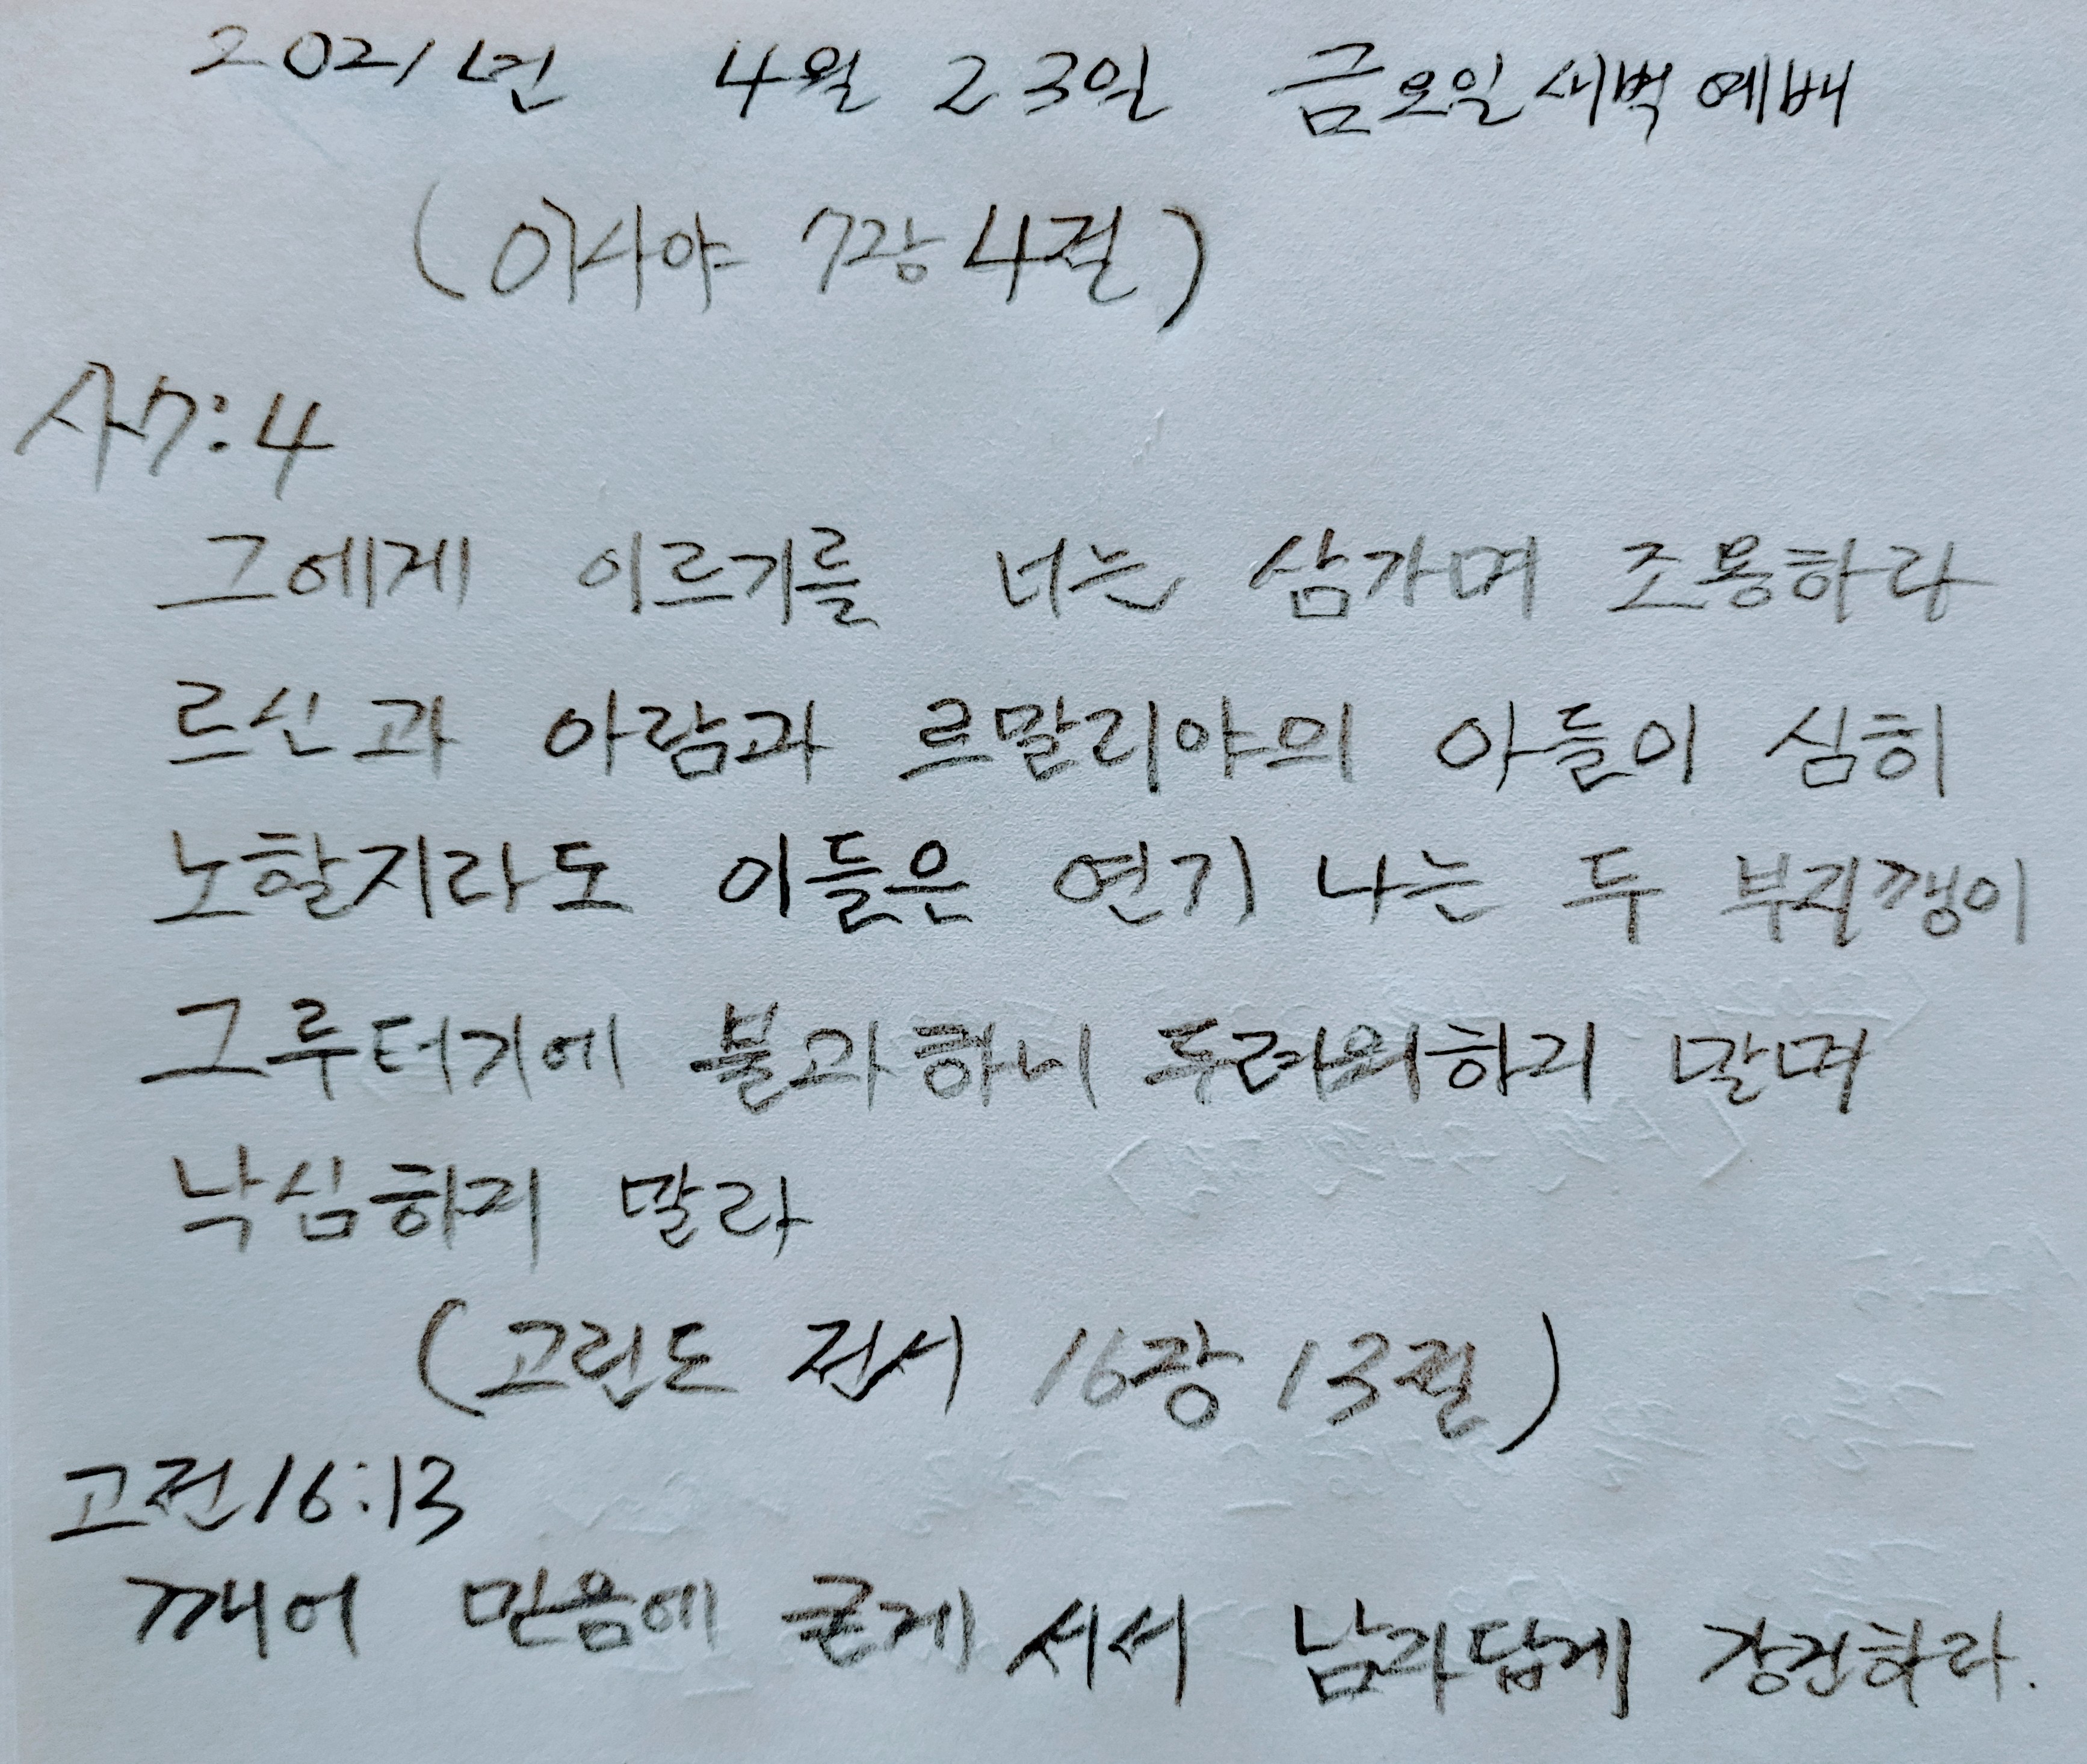 2021년 4월 23일 금요일 새벽예배
(이사야 7장 4절)
사7:4
그에게 이르기를 너는 삼가며 조용하라
르신과 아람과 르말리야의 아들이 심히
노할지라도 이들은 연기 나는 두 부지깽이
그루터기에 불과하니 두려워하지 말며
낙심하지 말라
(고린도 전서 16장 13절)
고전16:13
깨어 믿음에 굳게 서서 남자답게 강건하라.